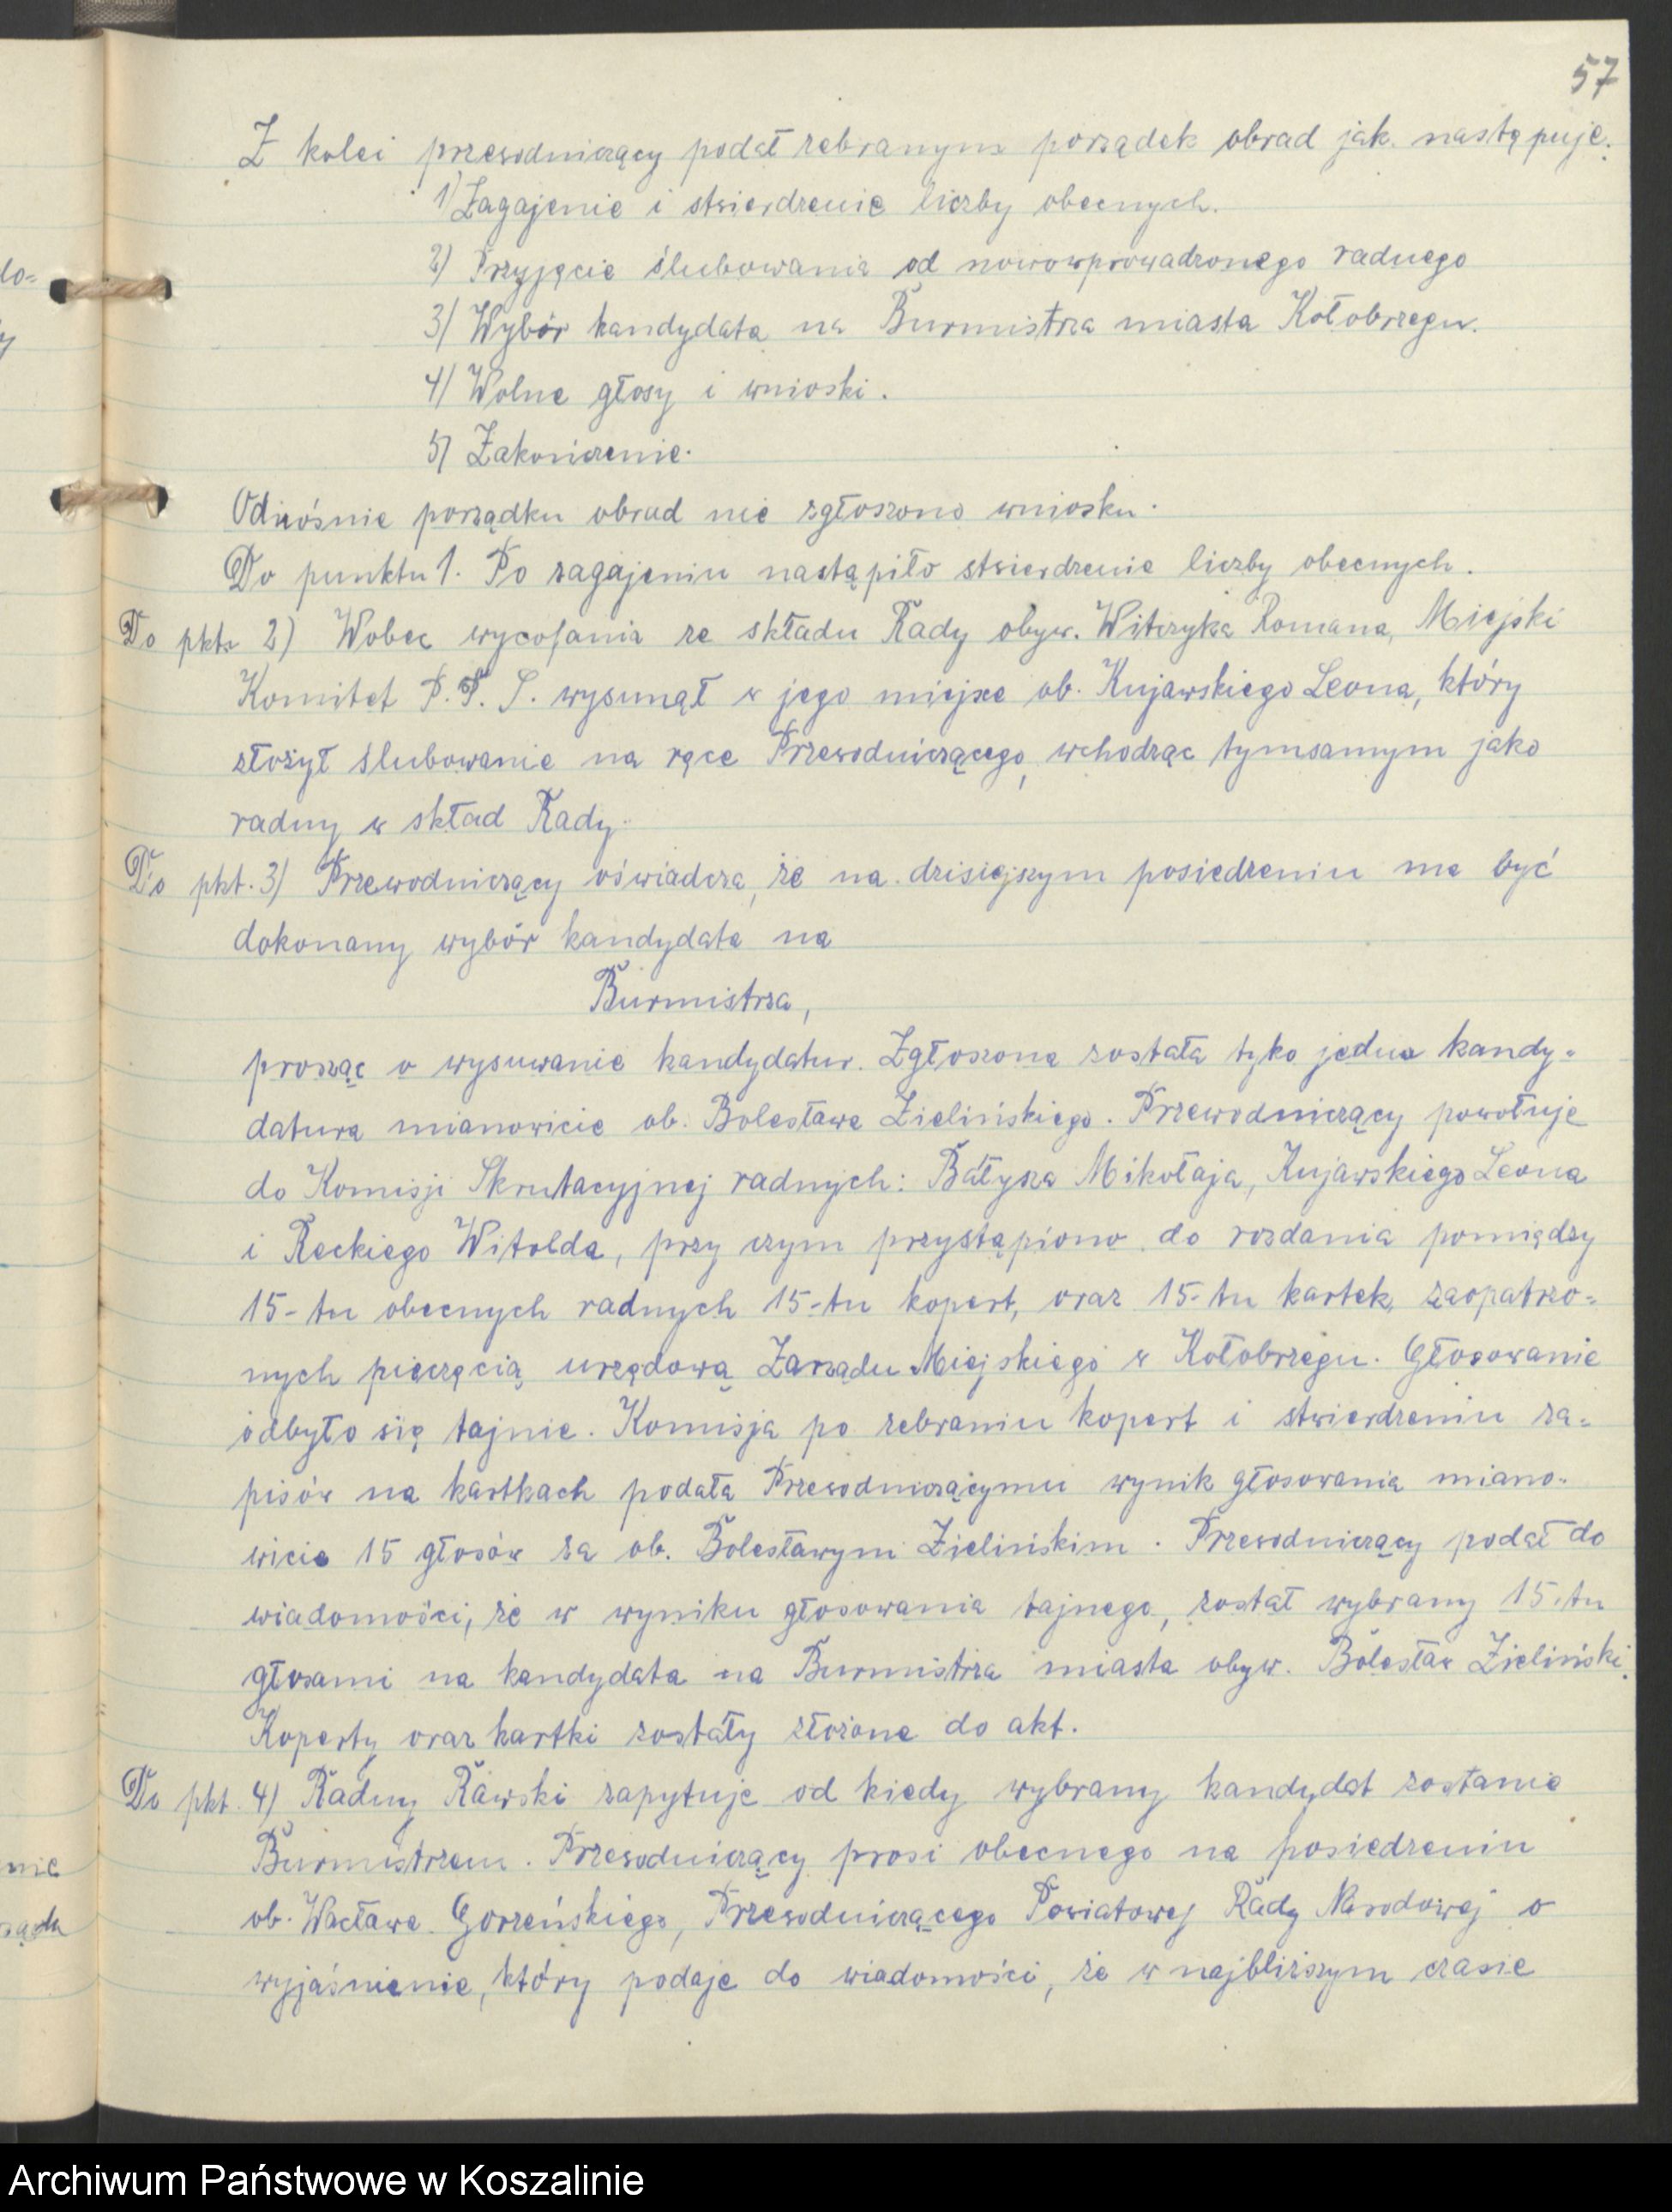 57
Z kolei przewodniczący podał zebranym porządek obrad jak następuje.
1) Zagajenie i stwierdzenie liczby obecnych.
2) Przyjęcie ślubowania od nowowprowadzonego radnego
3) Wybór kandydata na Burmistrza miasta Kołobrzegu.
4) Wolne głosy i wnioski.
5) Zakończenie.
Odnośnie porządku obrad nie zgłoszono wniosku.
Do punktu 1. Po zagajeniu nastąpiło stwierdzenie liczby obecnych.
Do pktu 2) Wobec wycofania ze składu Rady obyw. Witczyka Romana, Miejski
Komitet P.P.S. wysunął w jego miejsce ob. Kujawskiego Leona, który
złożył ślubowanie na ręce Przewodniczącego, wchodząc tymsamym jako
radny w skład Rady.
Do pkt. 3) Przewodniczący oświadcza, że na dzisiejszym posiedzeniu ma być
dokonany wybór kandydata na
Burmistrza,
prosząc o wysuwanie kandydatur. Zgłoszona została tyko jedna kandy-
datura mianowicie ob. Bolesława Zielińskiego. Przewodniczący powołuje
do Komisji Skrutacyjnej radnych: Bałysza Mikołaja, Kujawskiego Leona
i Reckiego Witolda, przy czym przystąpiono do rozdania pomiędzy
15-tu obecnych radnych 15-tu kopert, oraz 15-tu kartek, zaopatrzo-
nych pieczęcią urzędową Zarządu Miejskiego w Kołobrzegu. Głosowanie
odbyło się tajnie. Komisja po zebraniu kopert i stwierdzeniu za-
pisów na kartkach podała Przewodniczącymu wynik głosowania miano-
wicie 15 głosów za ob. Bolesławym Zielińskim. Przewodniczący podał do
wiadomości, że w wyniku głosowania tajnego, został wybrany 15-tu
głosami na kandydata na Burmistrza miasta obyw. Bolesław Zieliński.
Koperty oraz kartki zostały złożone do akt.
Do pkt. 4) Radny Rawski zapytuje od kiedy wybrany kandydat zostanie
Burmistrzem. Przewodniczący prosi obecnego na posiedzeniu
ob. Wacława Gorzeńskiego, Przewodniczącego Powiatowej Rady Narodowej o
wyjaśnienie, który podaje do wiadomości, że w najbliższym czasie
Archiwum Państwowe w Koszalinie